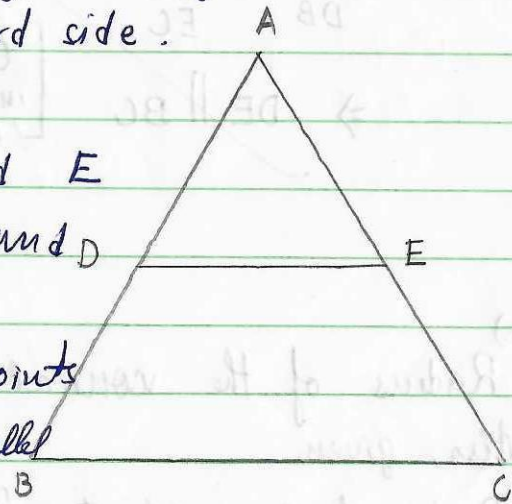 rd side.
A
d E
und
D E
oints
llel
B C